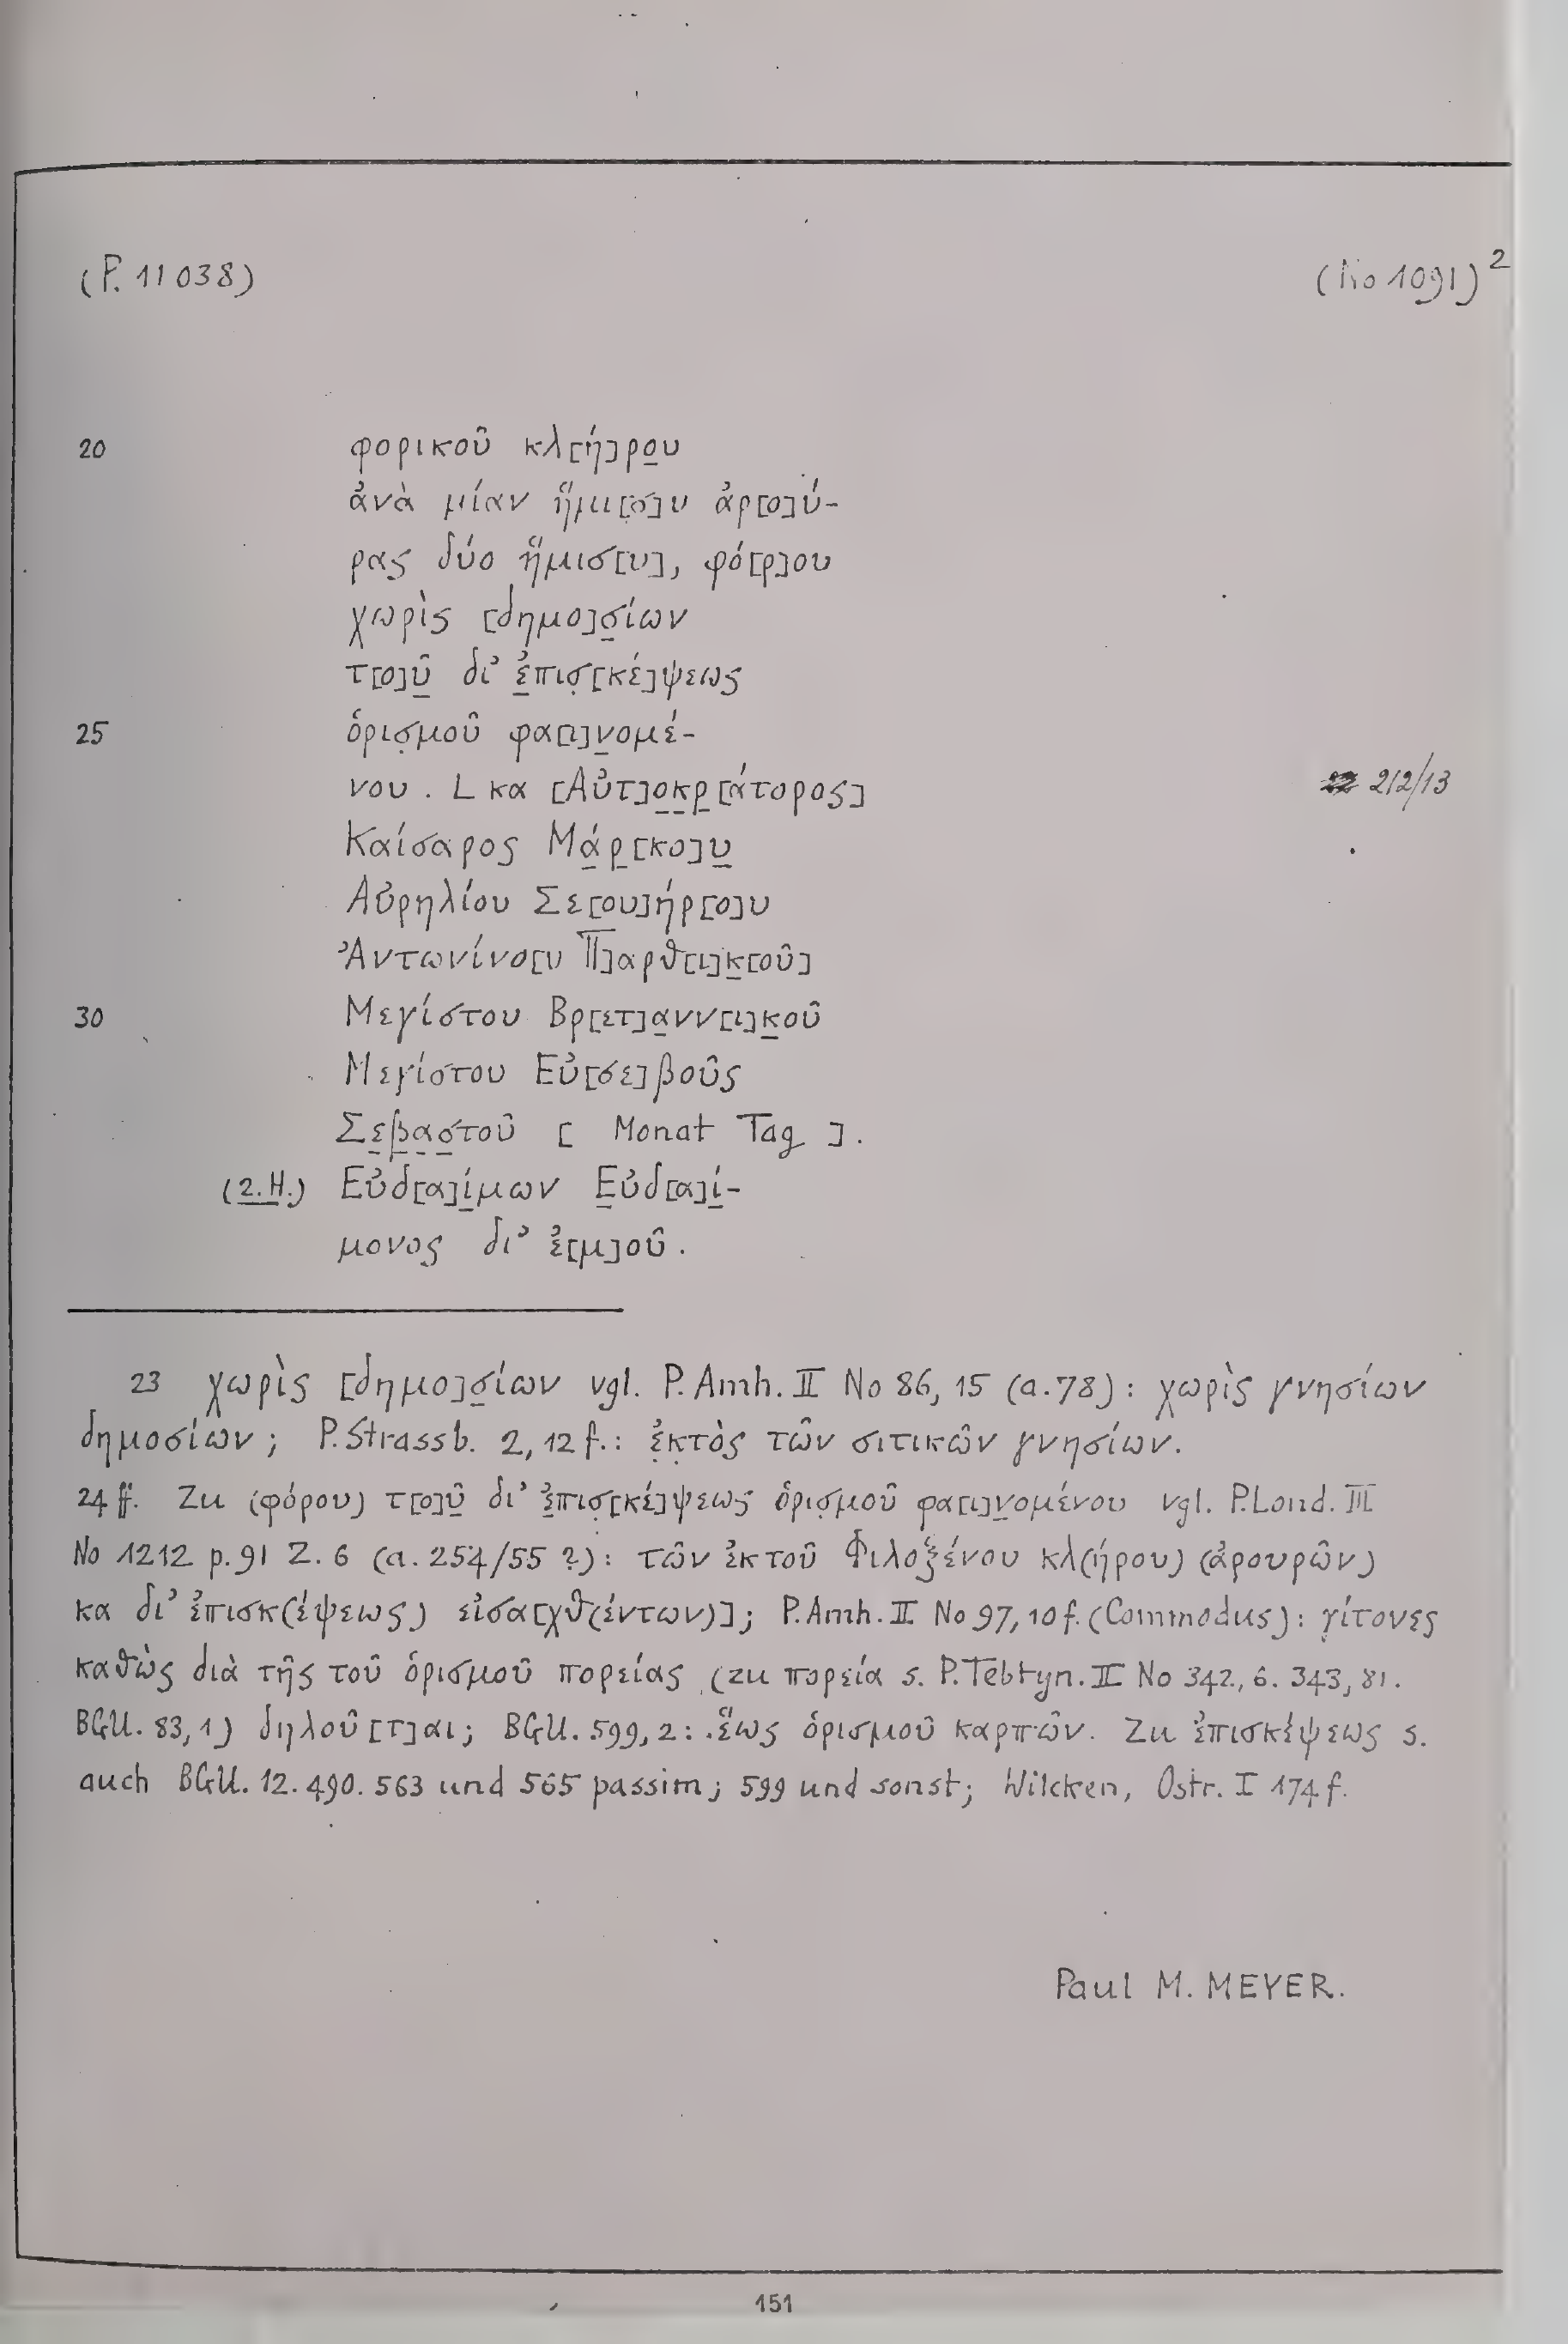 (P. 11038) (No 1091)²
20 φορικοῦ κλ[ή]ρου
ἀνὰ μίαν ἥμι[σ]υ ἀρ[ο]ύ-
ρας δύο ἥμισ[υ], φό[ρ]ου
χωρὶς [δημο]σίων
τ[ο]ῦ δι’ ἐπισ[κέ]ψεως
25 ὁρισμοῦ φα[ι]νομέ-
νου. L κα [Αὐτ]οκρ[άτορος] 212/13
Καίσαρος Μάρ[κο]υ
Αὐρηλίου Σε[ου]ήρ[ο]υ
Ἀντωνίνο[υ Π]αρθ[ι]κ[οῦ]
30 Μεγίστου Βρ[ετ]ανν[ι]κοῦ
Μεγίστου Εὐ[σε]βοῦς
Σεβαστοῦ [ Monat Tag ].
(2.H.) Εὐδ[α]ίμων Εὐδ[α]ί-
μονος δι’ ἐ[μ]οῦ.
23 χωρὶς [δημο]σίων vgl. P. Amh. II No 86, 15 (a. 78): χωρὶς γνησίων
δημοσίων; P. Strassb. 2, 12 f.: ἐκτὸς τῶν σιτικῶν γνησίων.
24 ff. Zu (φόρου) τ[ο]ῦ δι’ ἐπισ[κέ]ψεως ὁρισμοῦ φα[ι]νομένου vgl. P. Lond. III
No 1212 p. 91 Z. 6 (a. 254/55 ?): τῶν ἐκτοῦ Φιλοξένου κλ(ήρου) (ἀρουρῶν)
κα δι’ ἐπισκ(έψεως) εἰσα[χθ(έντων)]; P. Amh. II No 97, 10 f. (Commodus): γίτονες
καθὼς διὰ τῆς τοῦ ὁρισμοῦ πορείας (zu πορεία s. P. Tebtyn. II No 342, 6. 343, 81.
BGU. 83, 1) δηλοῦ[τ]αι; BGU. 599, 2: ἕως ὁρισμοῦ καρπῶν. Zu ἐπισκέψεως s.
auch BGU. 12. 490. 563 und 565 passim; 599 und sonst; Wilcken, Ostr. I 174 f.
Paul M. MEYER.
151